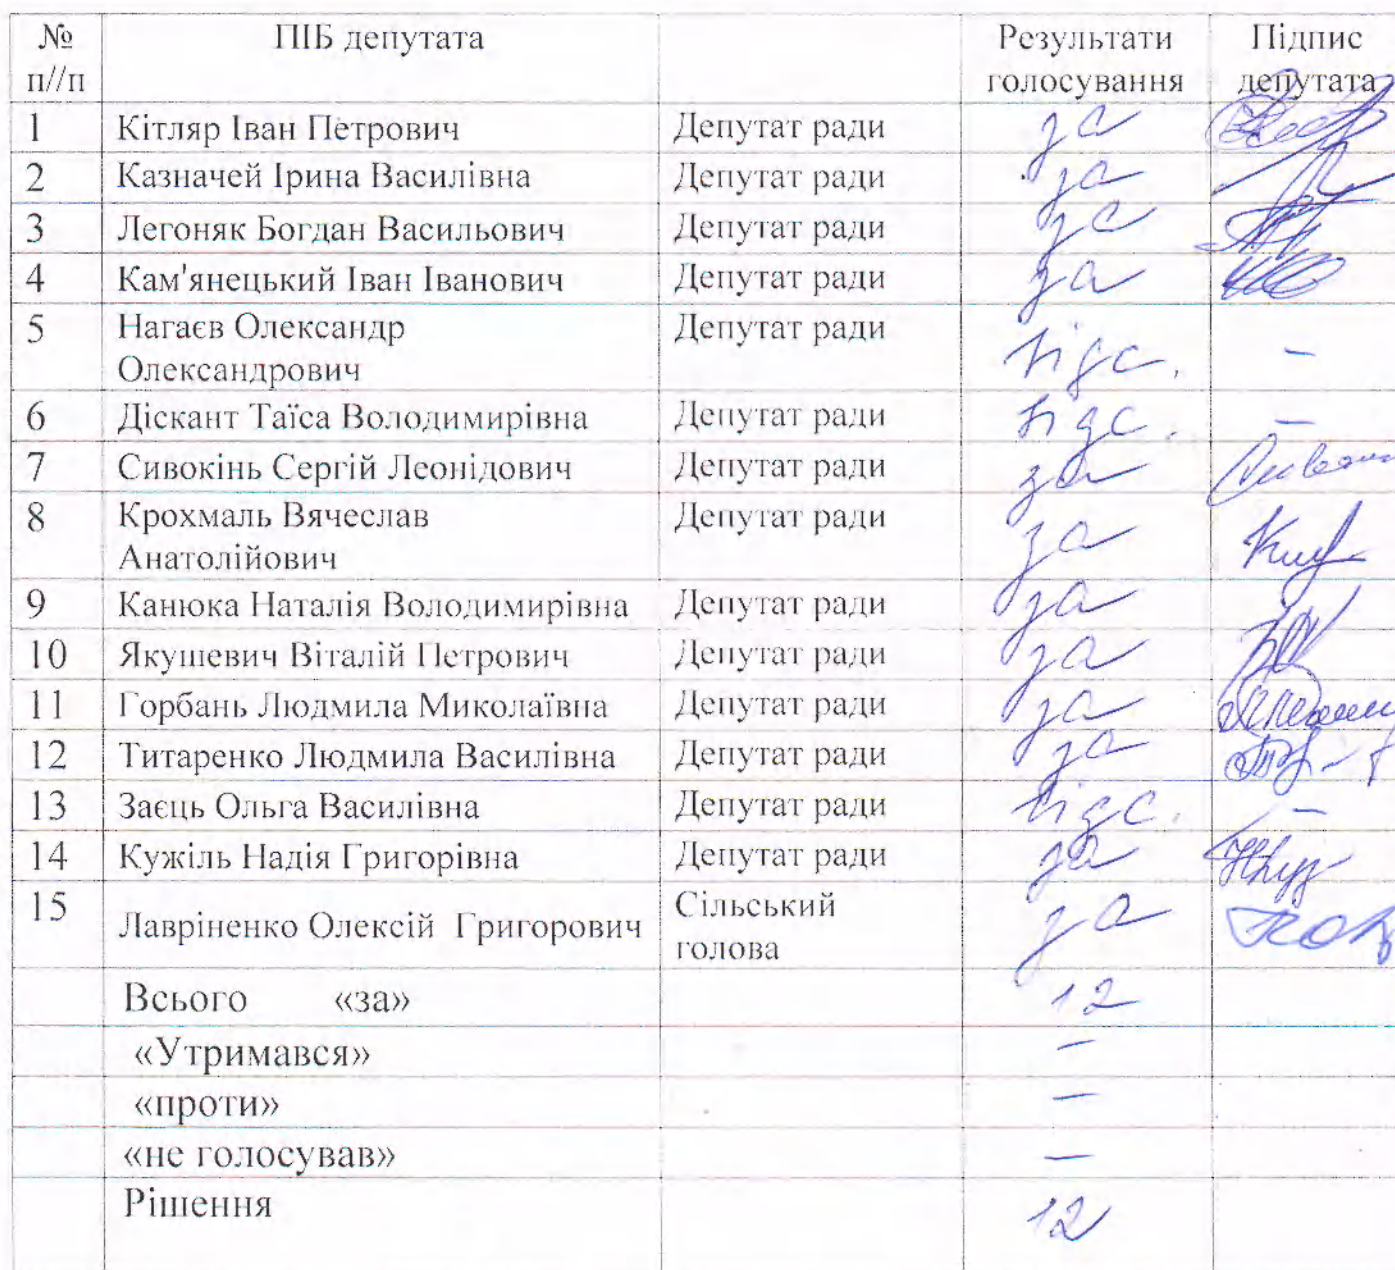 № ПІБ депутата Результати Підпис
п//п голосування депутата
1 Кітляр Іван Петрович Депутат ради за
2 Казначей Ірина Василівна Депутат ради за
3 Легоняк Богдан Васильович Депутат ради за
4 Кам'янецький Іван Іванович Депутат ради за
5 Нагаєв Олександр Депутат ради
Олександрович відс. –
6 Діскант Таїса Володимирівна Депутат ради відс. –
7 Сивокінь Сергій Леонідович Депутат ради за
8 Крохмаль Вячеслав Депутат ради за
Анатолійович
9 Канюка Наталія Володимирівна Депутат ради за
10 Якушевич Віталій Петрович Депутат ради за
11 Горбань Людмила Миколаївна Депутат ради за
12 Титаренко Людмила Василівна Депутат ради за
13 Заєць Ольга Василівна Депутат ради відс. –
14 Кужіль Надія Григорівна Депутат ради за
15 Лавріненко Олексій Григорович Сільський за
голова
Всього «за» 12
«Утримався» –
«проти» –
«не голосував» –
Рішення 12